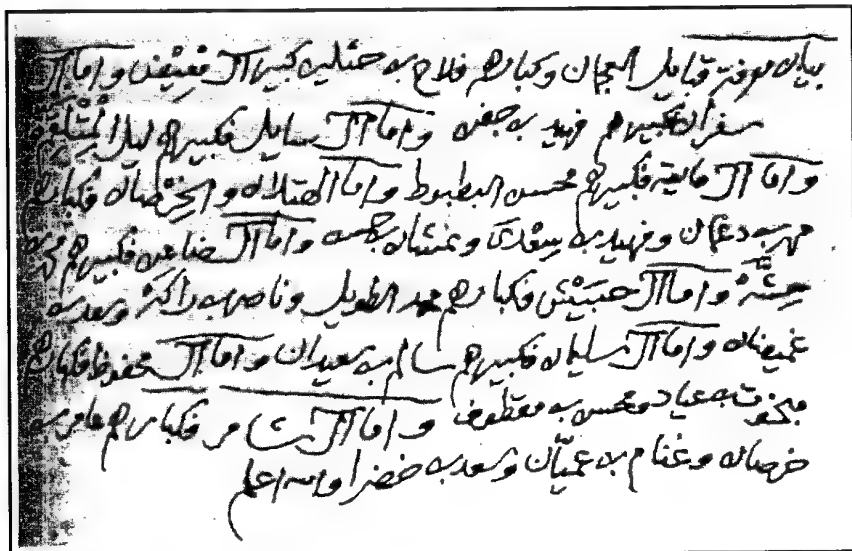 بيان معرفة قبايل العجمان وكبارهم فلاح بن حثلين كبير ال معيض واما ال
سفران فكبيرهم فهيد بن جفن واما ال سايل فكبيرهم ليل المتلقم
واما ال فكبيرهم محسن البطبوط واما الهتلان والخرصان فكبارهم
مهر بن دعجان وفهيد بن سعدي وغنشان بن واما ال ضاعن فكبيرهم محمد بن
واما ال حبيش فكبارهم محمد الطويل وناصر بن راكة وسعد بن
غميضان واما ال سليمان فكبيرهم سالم بن سعيدان واما ال محفوظ فكبارهم
مبخوت بن عياد ومحسن بن مقطوف واما ال شامر فكبارهم عامر بن
خرصان وغنام بن عميان وسعد بن خضرا والله اعلم